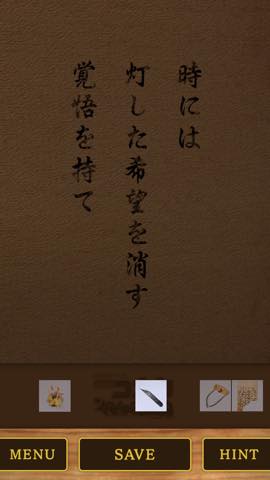 時には
灯した希望を消す
覚悟を持て
MENU
SAVE
HINT